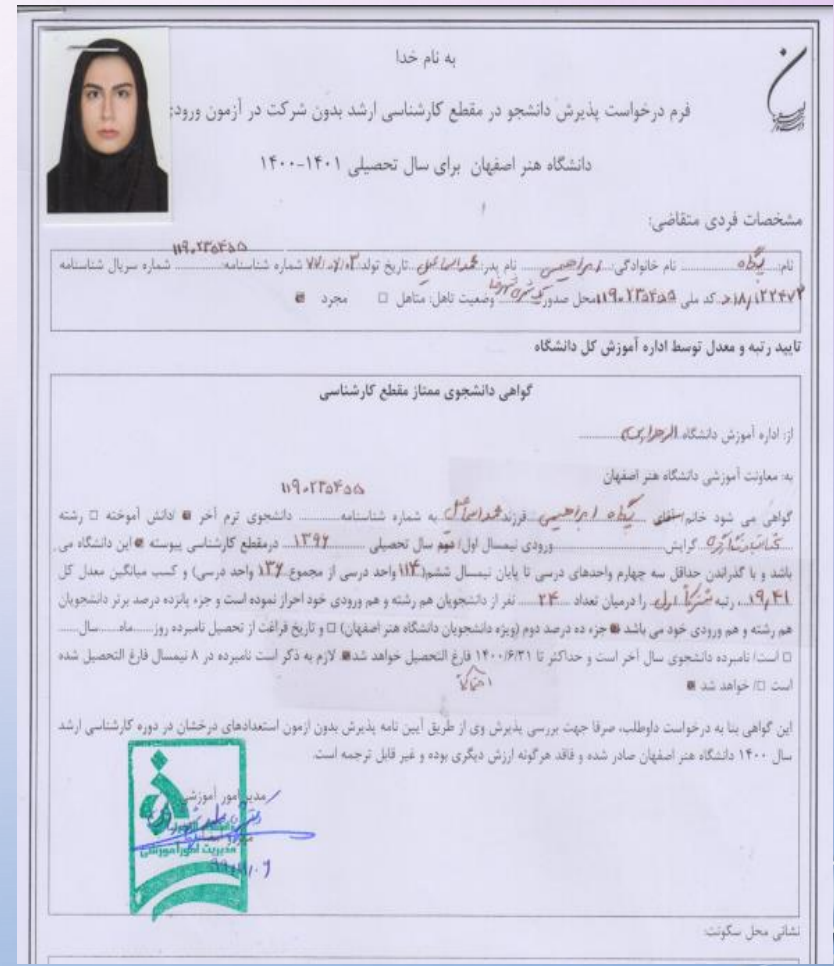 به نام خدا
فرم درخواست پذیرش دانشجو در مقطع کارشناسی ارشد بدون شرکت در آزمون ورودی
دانشگاه هنر اصفهان برای سال تحصیلی ۱۴۰۱-۱۴۰۰
مشخصات فردی متقاضی:
۱۱۹۰۲۳۵۴۵۵
نام: پگاه نام خانوادگی: ابراهیمی نام پدر: محمد اسماعیل تاریخ تولد: شماره شناسنامه: شماره سریال شناسنامه
کد ملی ۱۱۹۰۲۳۵۴۵۵ محل صدور وضعیت تاهل: متاهل □ مجرد ■
تایید رتبه و معدل توسط اداره آموزش کل دانشگاه
گواهی دانشجوی ممتاز مقطع کارشناسی
از: اداره آموزش دانشگاه الزهرا (س)
به: معاونت آموزشی دانشگاه هنر اصفهان
۱۱۹۰۲۳۵۴۵۵
گواهی می شود خانم/آقای پگاه ابراهیمی فرزند محمد اسماعیل به شماره شناسنامه دانشجوی ترم آخر ■ /دانش آموخته □ رشته
گرایش ورودی نیمسال اول/دوم سال تحصیلی ۱۳۹۶ درمقطع کارشناسی پیوسته ■ این دانشگاه می
باشد و با گذراندن حداقل سه چهارم واحدهای درسی تا پایان نیمسال ششم(۱۱۴ واحد درسی از مجموع ۱۳۶ واحد درسی) و کسب میانگین معدل کل
۱۹,۴۱، رتبه مشترکاً اول را درمیان تعداد ۲۴ نفر از دانشجویان هم رشته و هم ورودی خود احراز نموده است و جزء پانزده درصد برتر دانشجویان
هم رشته و هم ورودی خود می باشد ■ جزء ده درصد دوم (ویژه دانشجویان دانشگاه هنر اصفهان) □ و تاریخ فراغت از تحصیل نامبرده روز......ماه......سال......
□ است/ نامبرده دانشجوی سال آخر است و حداکثر تا ۱۴۰۰/۶/۳۱ فارغ التحصیل خواهد شد■ لازم به ذکر است نامبرده در ۸ نیمسال فارغ التحصیل شده
است □/ خواهد شد ■ احتمالاً
این گواهی بنا به درخواست داوطلب، صرفا جهت بررسی پذیرش وی از طریق آیین نامه پذیرش بدون ازمون استعدادهای درخشان در دوره کارشناسی ارشد
سال ۱۴۰۰ دانشگاه هنر اصفهان صادر شده و فاقد هرگونه ارزش دیگری بوده و غیر قابل ترجمه است.
مدیر امور آموزشی
مدیریت امور آموزشی
نشانی محل سکونت: